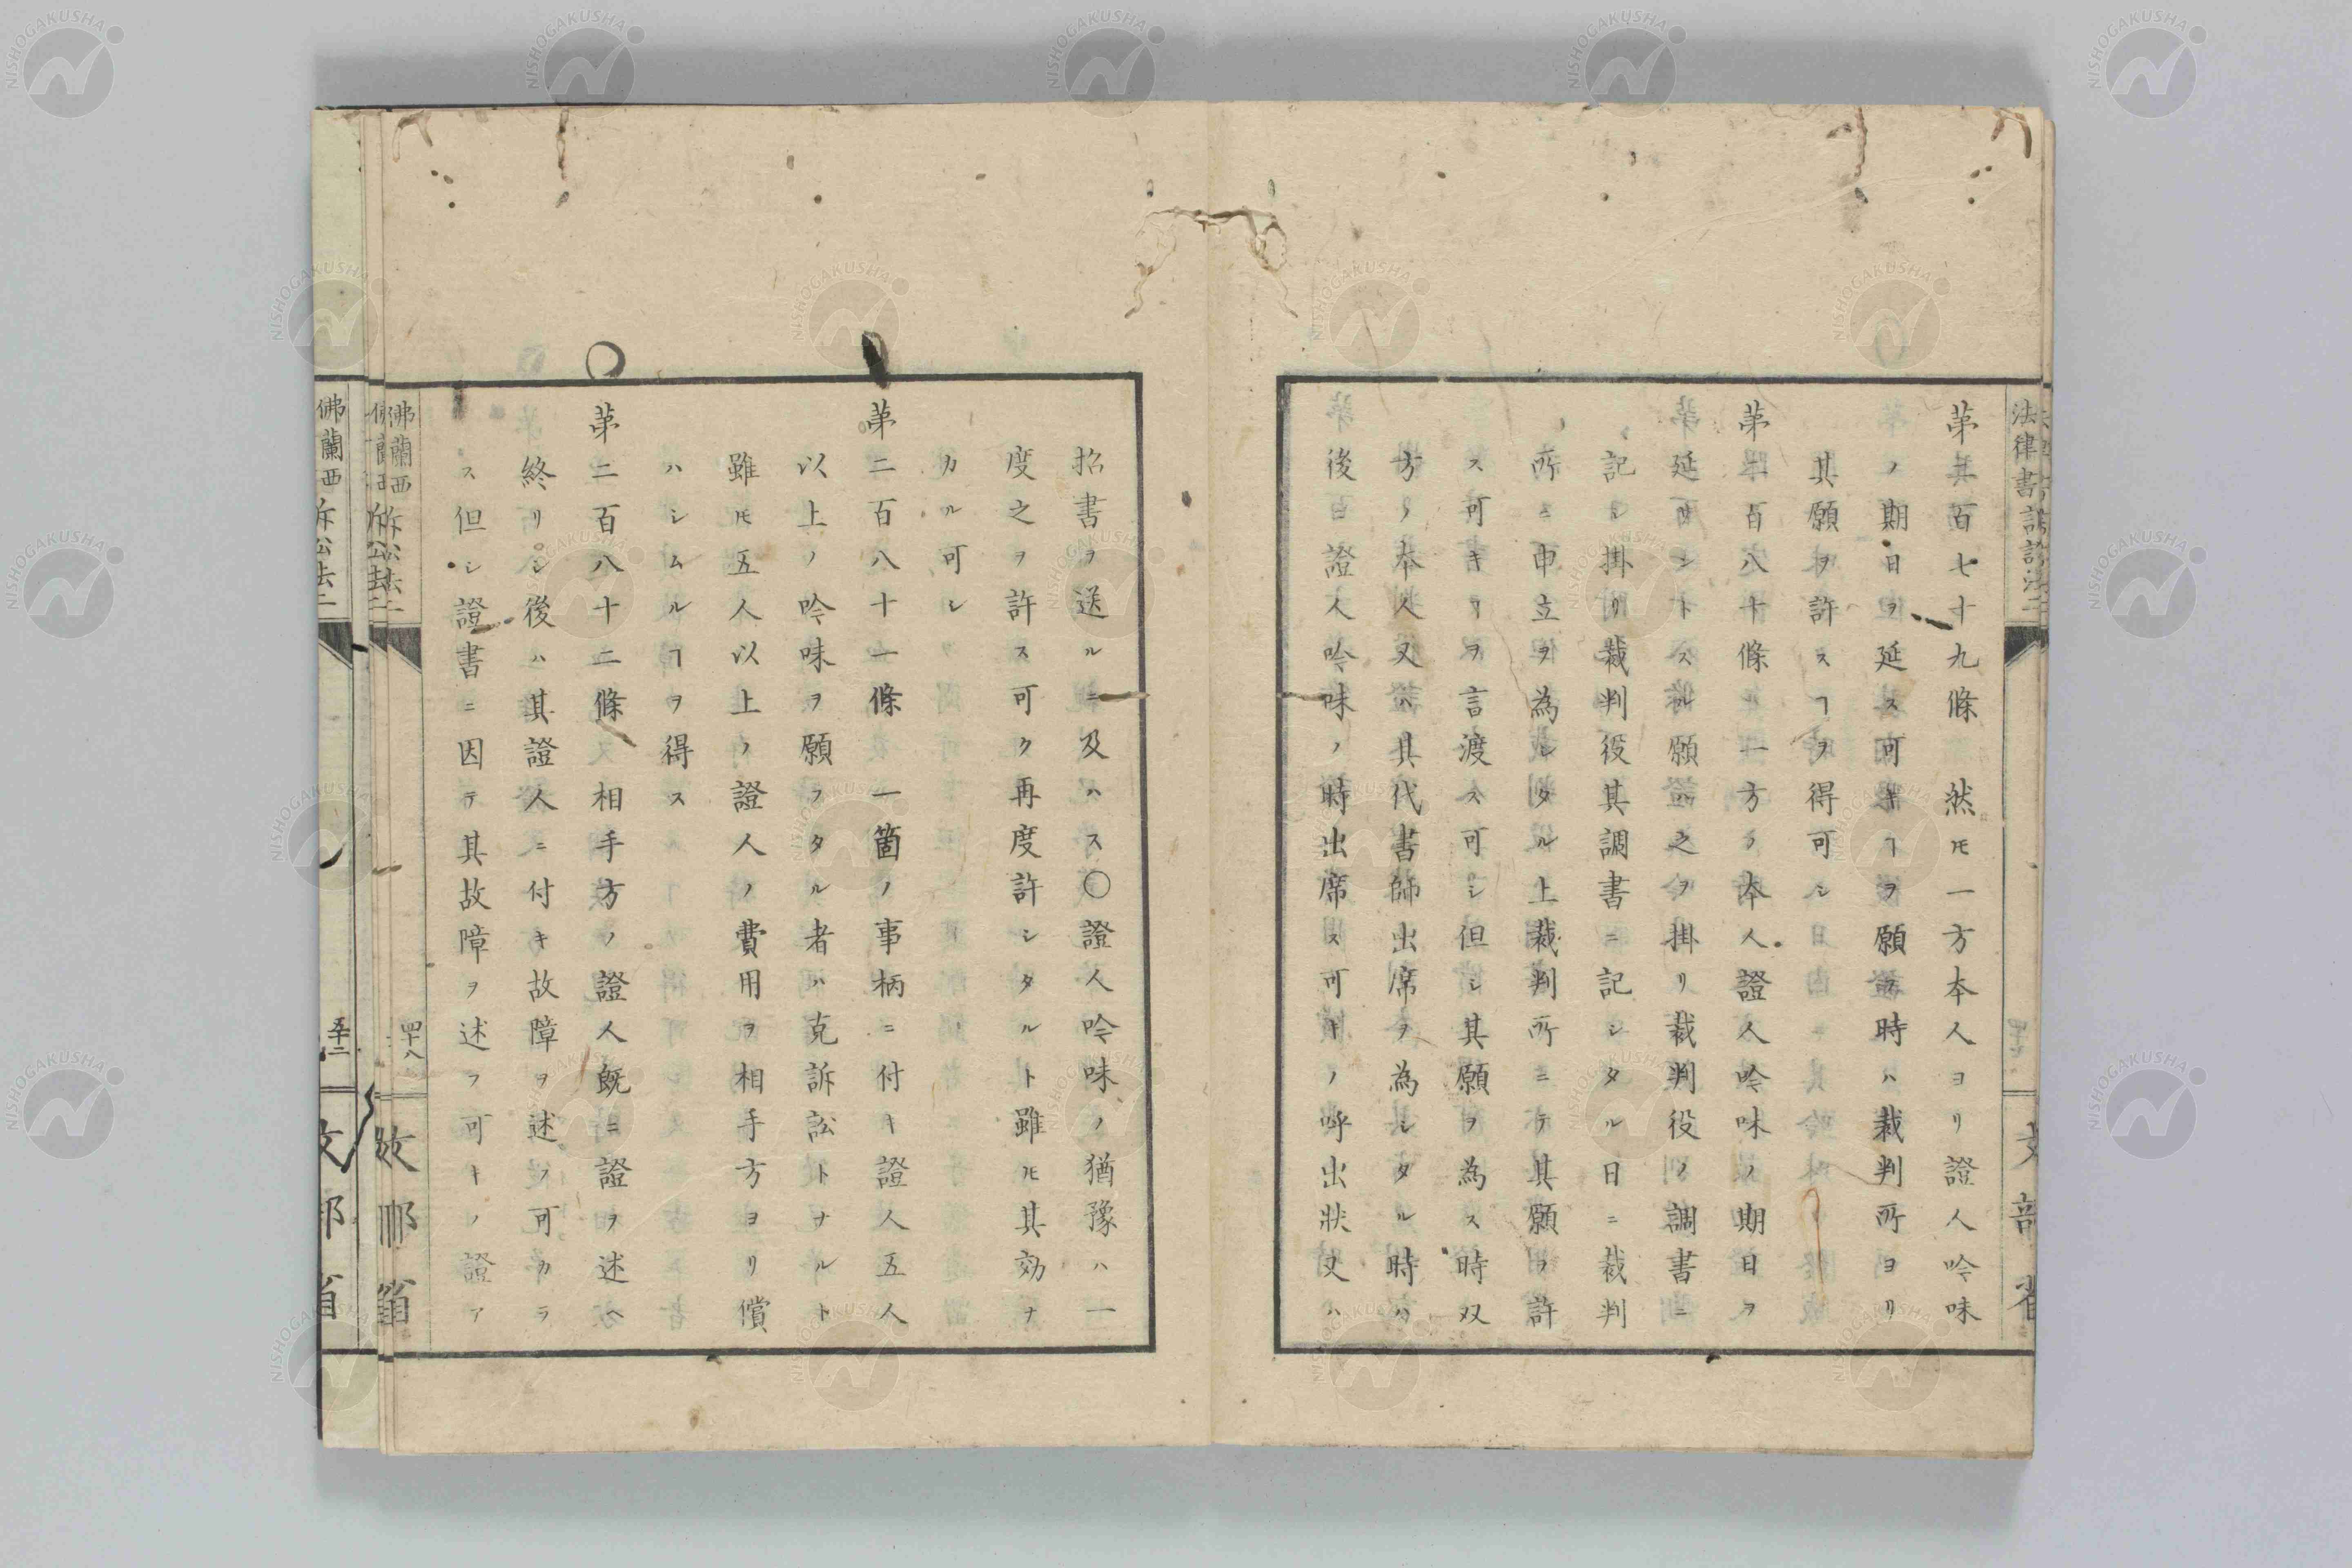 法律書訴訟法二 文部省
第二百七十九條 然𪜈一方本人ヨリ證人吟味
ノ期日ヲ延ス可キヿヲ願フ時ハ裁判所ヨリ
其願ヲ許スヿヲ得可シ
第二百八十條 一方ノ本人證人吟味ノ期日ヲ
延サントスル願ハ之ヲ掛リ裁判役ノ調書ニ
記シ掛リ裁判役其調書ニ記シタル日ニ裁判
所ニ申立ヲ為シタル上裁判所ニテ其願ヲ許
ス可キヿヲ言渡ス可シ但シ其願ヲ為ス時双
方ノ本人又ハ其代書師出席ヲ為シタル時ハ
後日證人吟味ノ時出席ス可キノ呼出狀又ハ
招書ヲ送ルニ及ハス○證人吟味ノ猶豫ハ一
度之ヲ許ス可ク再度許シタルト雖𪜈其効ナ
カル可シ
第二百八十一條 一箇ノ事柄ニ付キ證人五人
以上ノ吟味ヲ願フタル者ハ克訴訟トナルト
雖𪜈五人以上ノ證人ノ費用ヲ相手方ヨリ償
ハシムルヿヲ得ス
第二百八十二條 相手方ノ證人既ニ證ヲ述ヘ
終リシ後ハ其證人ニ付キ故障ヲ述フ可カラ
ス但シ證書ニ因テ其故障ヲ述フ可キノ證ア
佛蘭西訴訟法二 四十八 文部省
佛蘭西訴訟法二 五十二 文部省